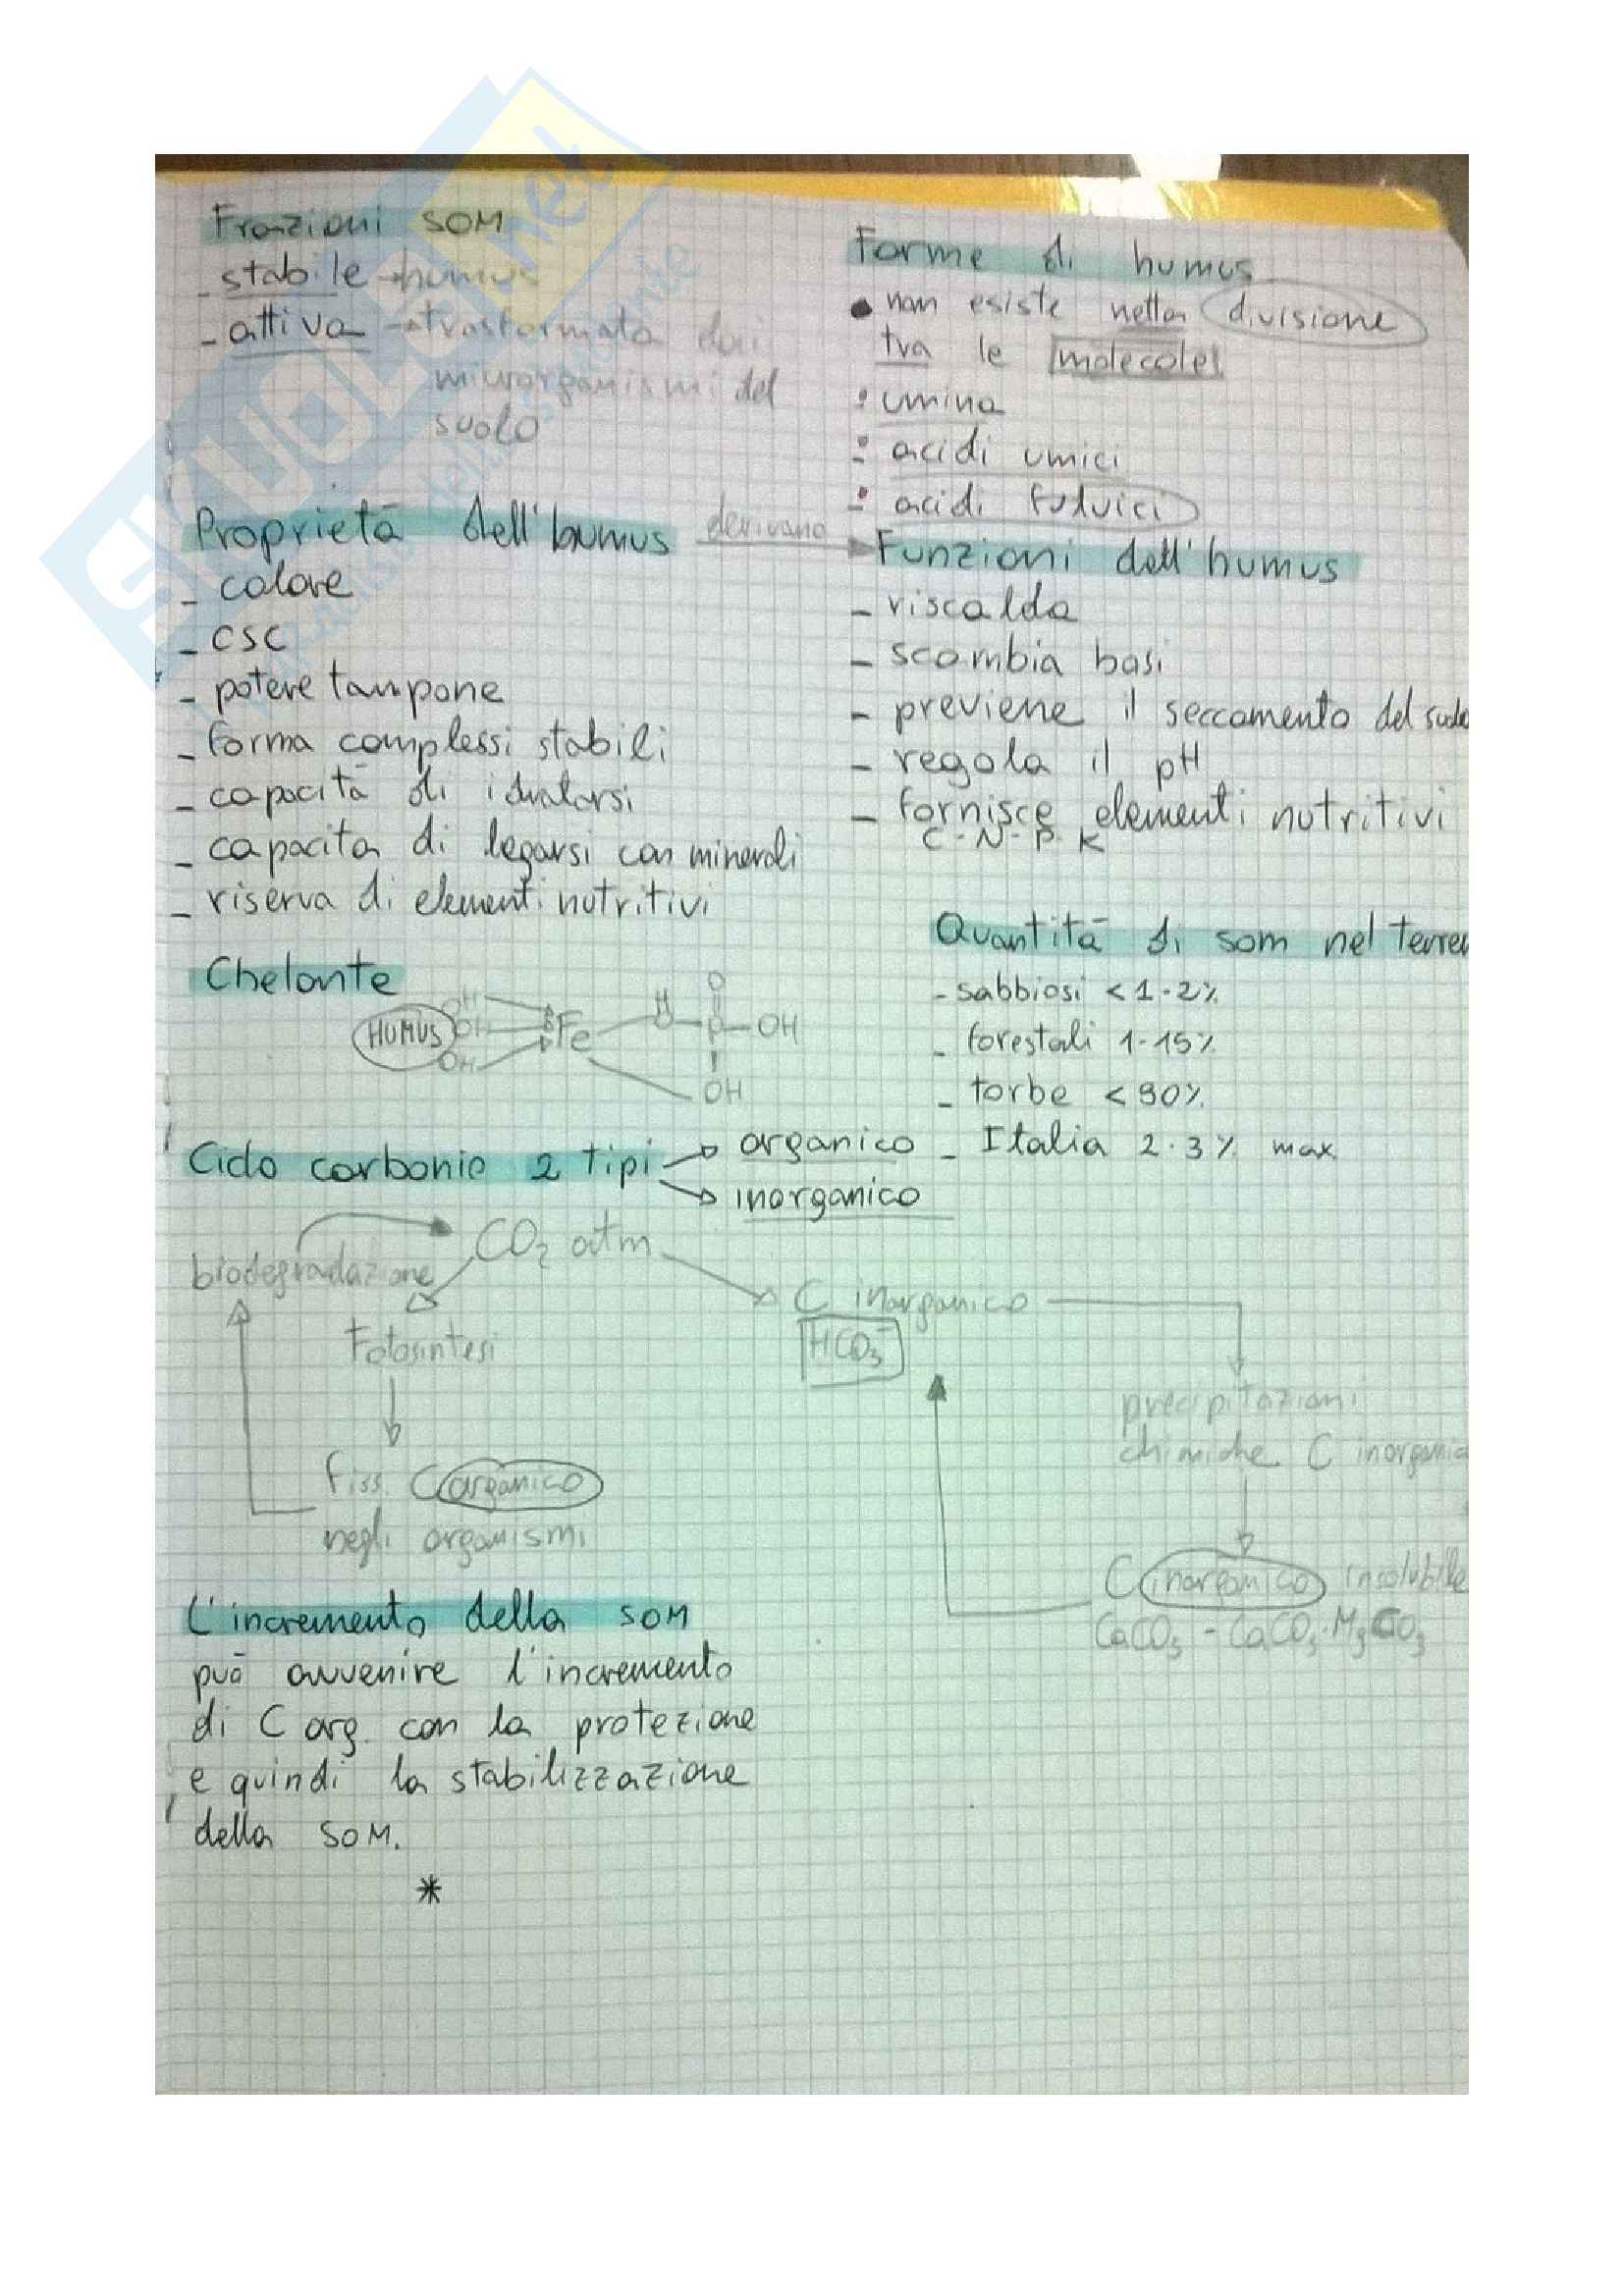 Frazioni SOM
- stabile → humus
- attiva → trasformata dai
microrganismi del
suolo
Forme di humus
• non esiste netta divisione
tra le molecole
: umina
: acidi umici
: acidi fulvici
Proprietà dell'humus derivano
- colore
- CSC
- potere tampone
- forma complessi stabili
- capacità di idratarsi
- capacità di legarsi con minerali
- riserva di elementi nutritivi
Funzioni dell'humus
- riscalda
- scambia basi
- previene il seccamento del suolo
- regola il pH
- fornisce elementi nutritivi
C-N-P-K
Chelante
HUMUS OH OH OH Fe O P OH
O
OH
Quantità di som nel terren
- sabbiosi <1-2%
- forestali 1-15%
- torbe <90%
- Italia 2-3% max
Ciclo carbonio 2 tipi
organico
inorganico
biodegradazione
CO₂ atm
Fotosintesi
fiss. C organico
negli organismi
C inorganico
HCO₃⁻
precipitazioni
chimiche C inorganic
C inorganico insolubile
CaCO₃ - CaCO₃·MgCO₃
L'incremento della SOM
può avvenire l'incremento
di C org. con la protezione
e quindi la stabilizzazione
della SOM.
*
SKUOLA.net